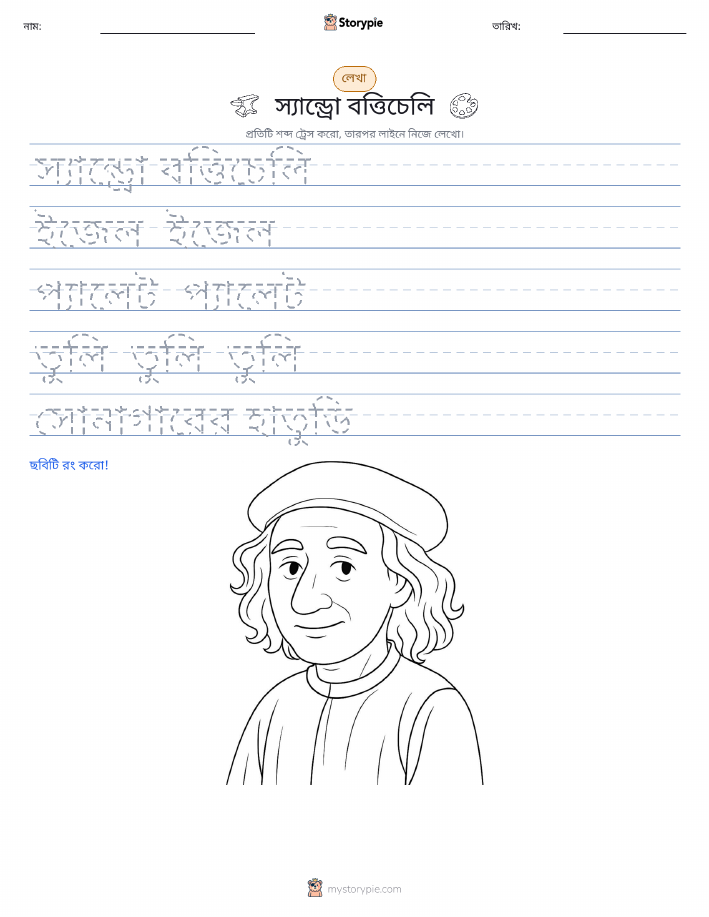 নাম:
Storypie
তারিখ:
লেখা
স্যান্ড্রো বত্তিচেলি
প্রতিটি শব্দ ট্রেস করো, তারপর লাইনে নিজে লেখো।
স্যান্ড্রো বত্তিচেলি
ইজেল ইজেল
প্যালেট প্যালেট
তুলি তুলি তুলি
সোনাগারের হাতুড়ি
ছবিটি রং করো!
mystorypie.com